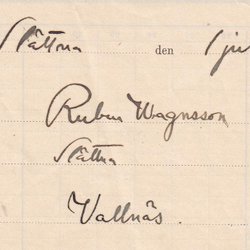 Slättna den 1 ju
Ruben Wagnsson
Slättna
Vallnäs.